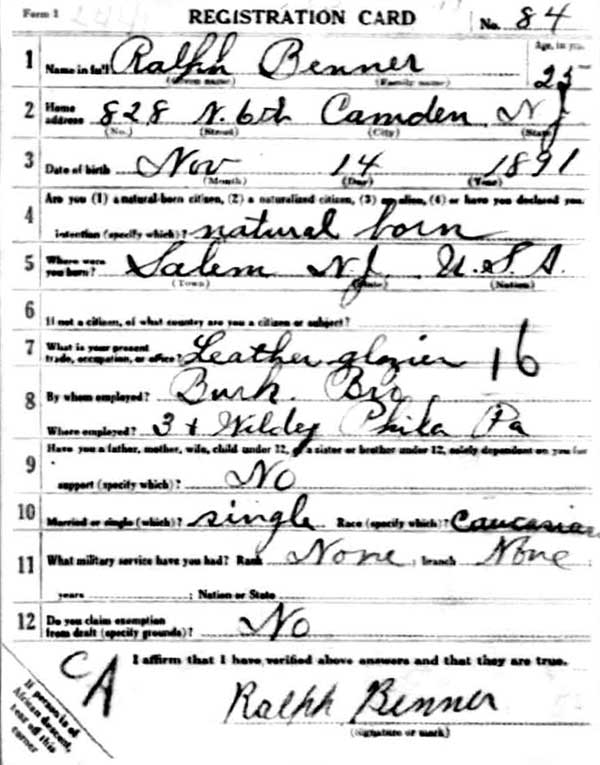 Form 1 REGISTRATION CARD No. 84
Age, in yrs.
1 Name in full Ralph Benner 25
(Given name) (Family name)
2 Home address 828 N. 6th Camden N J
(No.) (Street) (City) (State)
3 Date of birth Nov 14 1891
(Month) (Day) (Year)
4 Are you (1) a natural-born citizen, (2) a naturalized citizen, (3) an alien, (4) or have you declared your
intention (specify which)? natural born
5 Where were you born? Salem N.J. U.S.A.
(Town) (State) (Nation)
6 If not a citizen, of what country are you a citizen or subject?
7 What is your present trade, occupation, or office? Leather glazier 16
8 By whom employed? Burk. Bro
Where employed? 3 + Wildey Phila Pa
9 Have you a father, mother, wife, child under 12, or a sister or brother under 12, solely dependent on you for
support (specify which)? No
10 Married or single (which)? single Race (specify which)? Caucasian
11 What military service have you had? Rank None ; branch None ;
years ; Nation or State
12 Do you claim exemption from draft (specify grounds)? No
I affirm that I have verified above answers and that they are true.
CA
Ralph Benner
(Signature or mark)
If person is of
African descent,
tear off this
corner